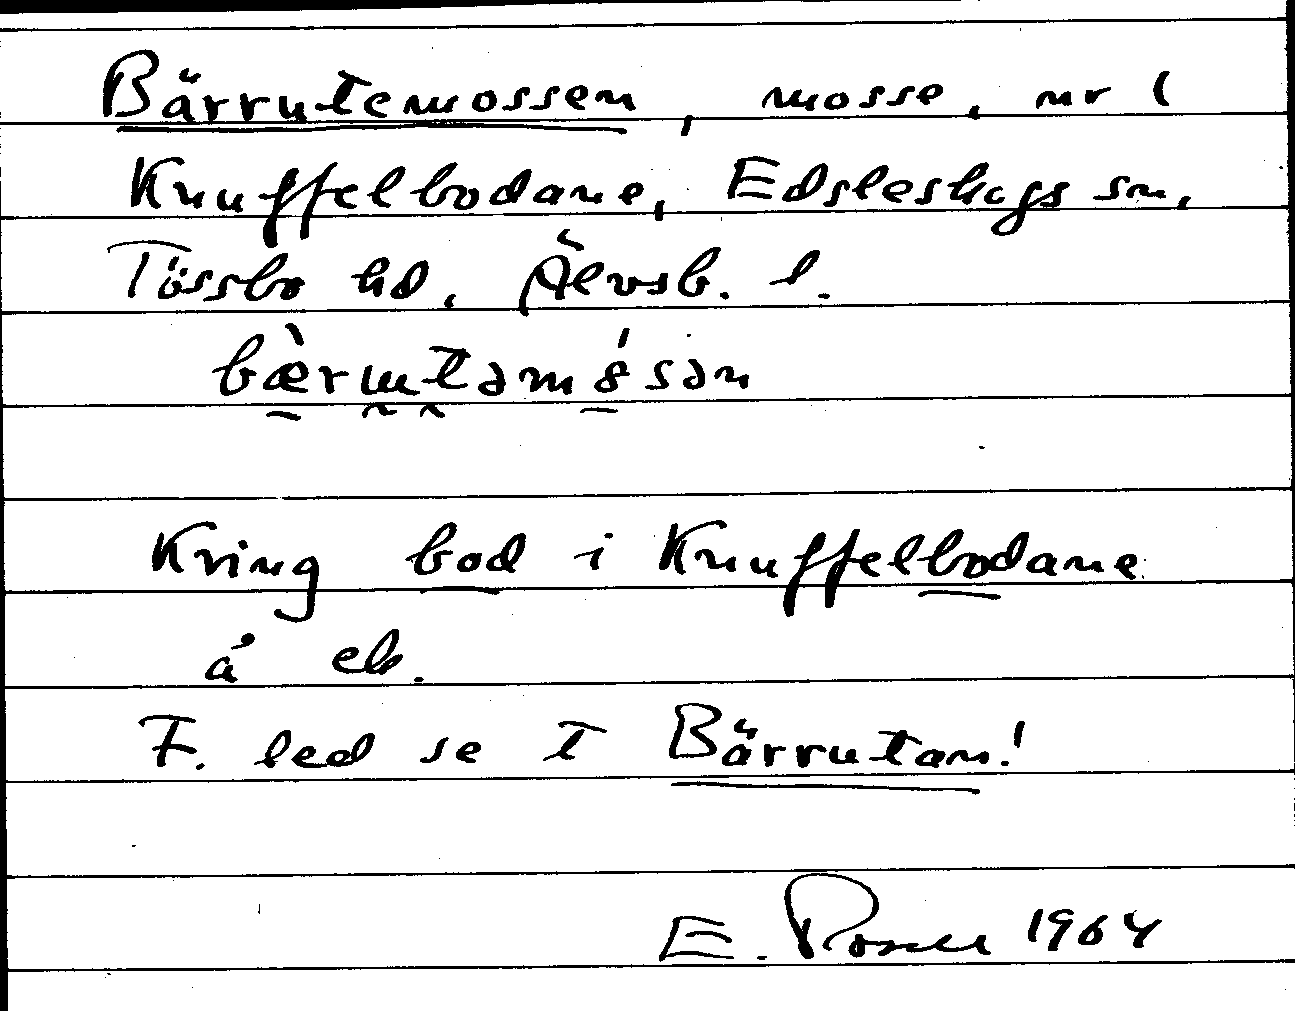 Bärrutemossen, mosse, nr 1
Knuffelbodane, Edsleskogs sn,
Tössbo hd, Älvsb. l.
bæ̀rɯtəmó̵sən
Kring bod i Knuffelbodane
å ek.
F. led se t Bärrutan!
E. 1964